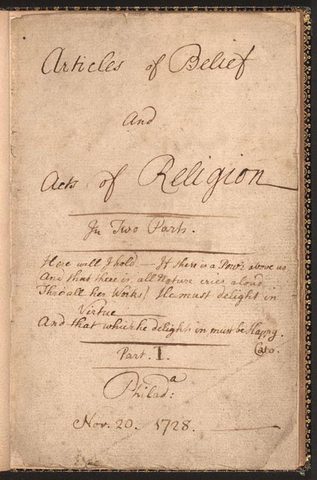 Articles of Belief
And
Acts of Religion
In Two Parts.
Here will I hold — If there is a Pow'r above us
And that there is all Nature cries aloud
Thro' all her Works) He must delight in
Virtue
And that which he delights in must be Happy.
Cato.
Part. I.
Philada:
Nov. 20. 1728.